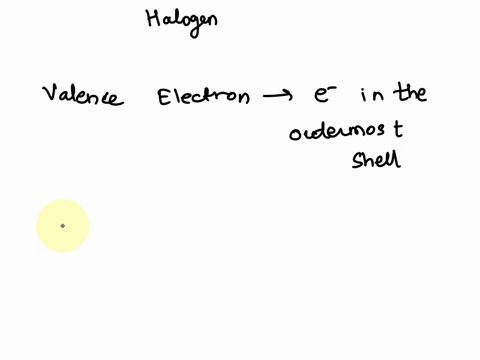 Halogen
Valence Electron → e⁻ in the
oudermost
Shell